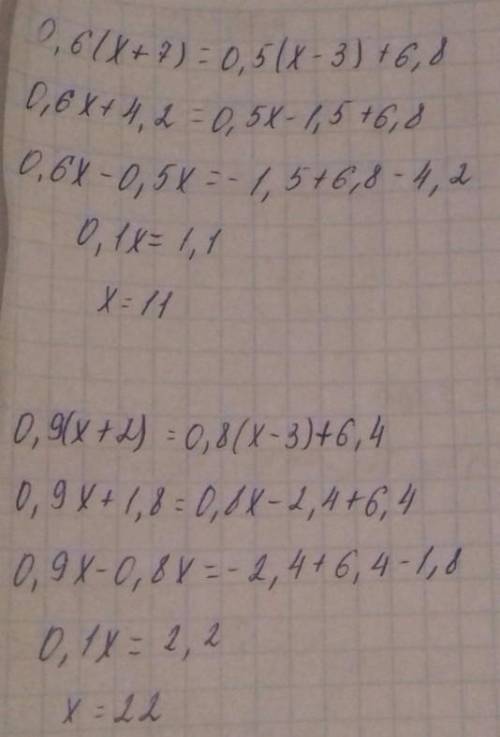 0,6(x+7)=0,5(x-3)+6,8
0,6x+4,2=0,5x-1,5+6,8
0,6x-0,5x=-1,5+6,8-4,2
0,1x=1,1
x=11
0,9(x+2)=0,8(x-3)+6,4
0,9x+1,8=0,8x-2,4+6,4
0,9x-0,8x=-2,4+6,4-1,8
0,1x=2,2
x=22